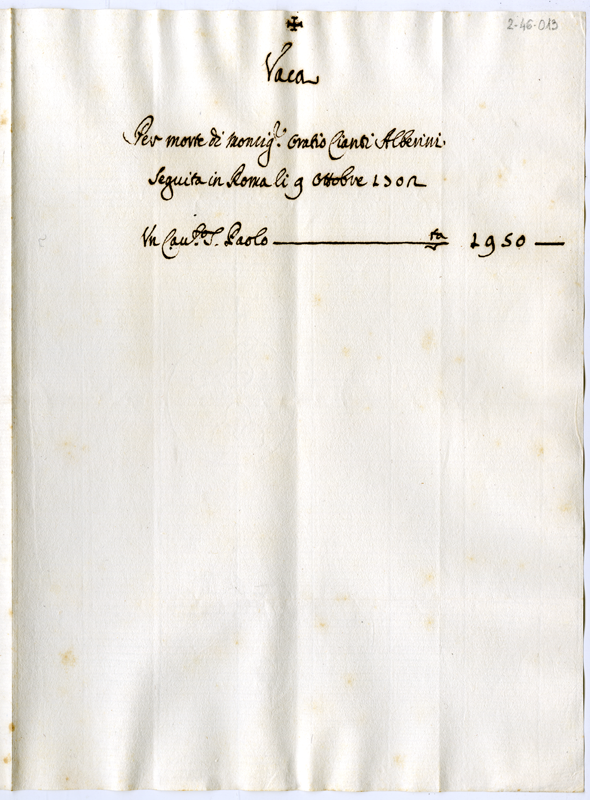 2-46-013
Vaca
Per morte di Monsig.r Oratio Cianti Alberini
Seguita in Roma li 9 Ottobre
Un Cau.to S. Paolo 1950